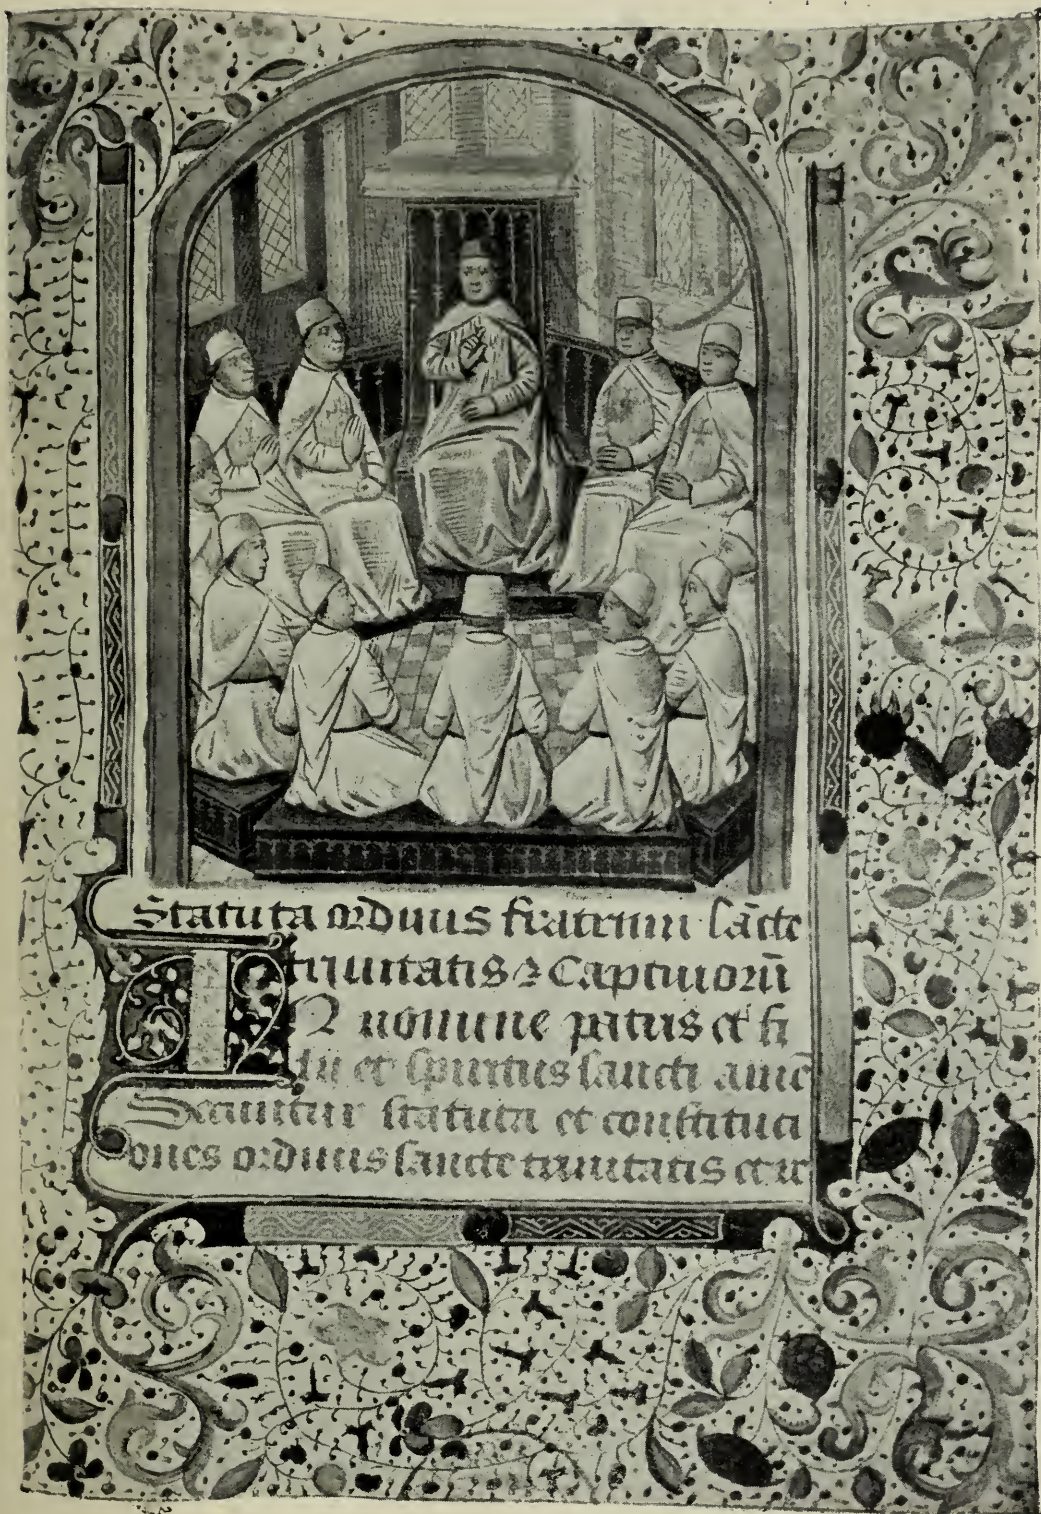 Statuta ordinis fratrum sācte
trinitatis ⁊ Captiuorū
IN nomine patris et fi
lii et spiritus sancti amē
Secuntur statuta et constituci
ones ordinis sancte trinitatis et